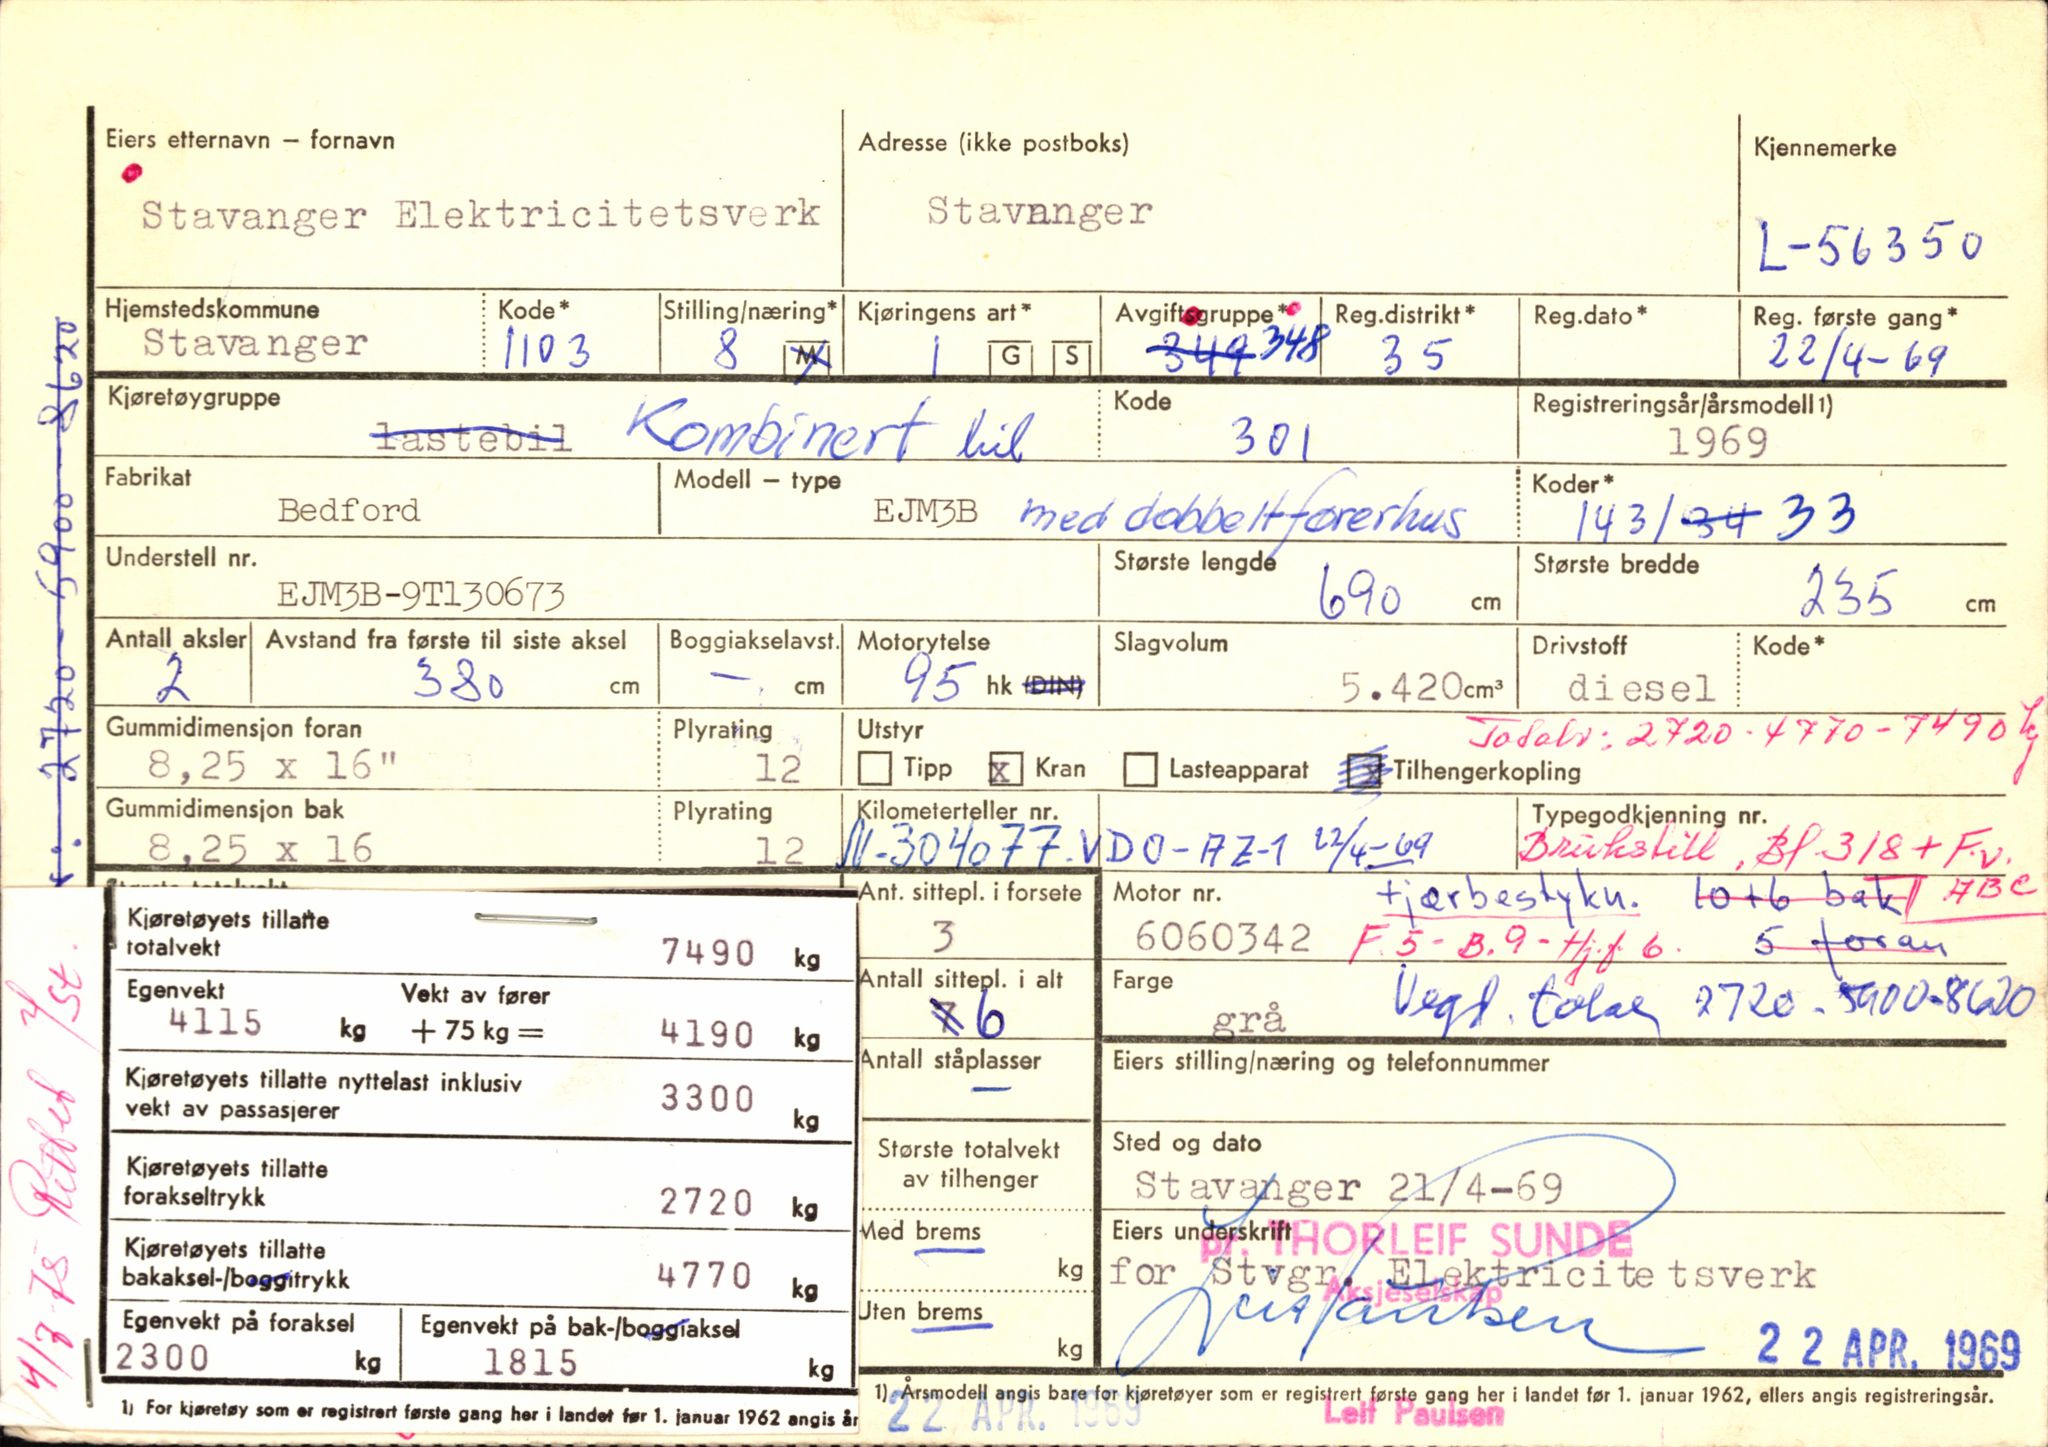 Eiers etternavn – fornavn
Adresse (ikke postboks)
Kjennemerke
Stavanger Elektricitetsverk
Stavnnger
L-56350
Hjemstedskommune
Kode*
Stilling/næring*
Kjøringens art*
Avgiftsgruppe*
Reg.distrikt*
Reg.dato*
Reg. første gang*
Stavanger
1103
8 M
1 G S
349 348
35
22/4-69
Kjøretøygruppe
Kode
Registreringsår/årsmodell1)
lastebil Kombinert bil
301
1969
Fabrikat
Modell – type
Koder*
Bedford
EJM3B med dobbelt førerhus
143/34 33
Understell nr.
Største lengde
Største bredde
EJM3B-9T130673
690 cm
235 cm
Antall aksler
Avstand fra første til siste aksel
Boggiakselavst.
Motorytelse
Slagvolum
Drivstoff
Kode*
2
380 cm
– cm
95 hk (DIN)
5.420cm³
diesel
Gummidimensjon foran
Plyrating
Utstyr
Totalv: 2720-4770-7490 kg
8,25 x 16"
12
Tipp x Kran Lasteapparat x Tilhengerkopling
Gummidimensjon bak
Plyrating
Kilometerteller nr.
Typegodkjenning nr.
8,25 x 16
12
N-304077.VDO-AZ-1 22/4-69
Brukstill. Bf 318 + F.v.
ABC
Største totalvekt
Kjøretøyets tillatte
totalvekt
7490 kg
Egenvekt
Vekt av fører
4115 kg
+ 75 kg =
4190 kg
Kjøretøyets tillatte nyttelast inklusiv
vekt av passasjerer
3300 kg
Kjøretøyets tillatte
forakseltrykk
2720 kg
Kjøretøyets tillatte
bakaksel-/boggitrykk
4770 kg
Egenvekt på foraksel
Egenvekt på bak-/boggiaksel
2300 kg
1815 kg
1) For kjøretøy som er registrert første gang her i landet før 1. januar 1962 angis år
Ant. sittepl. i forsete
3
Antall sittepl. i alt
7 6
Antall ståplasser
–
Største totalvekt
av tilhenger
Med brems
kg
Uten brems
kg
Motor nr.
Fjærbestykn. 10+6 bak
6060342
F.5-B.9-Hj.f 6.
5 foran
Farge
grå
Vegd. 2720-5900-8620
Eiers stilling/næring og telefonnummer
Sted og dato
Stavanger 21/4-69
Eiers underskrift
pr. THORLEIF SUNDE
for Stvgr. Elektricitetsverk
Aksjeselskap
Leif Paulsen
22 APR. 1969
1) Årsmodell angis bare for kjøretøyer som er registrert første gang her i landet før 1. januar 1962, ellers angis registreringsår.
22 APR. 1969
Leif Paulsen
2720-5900-8620